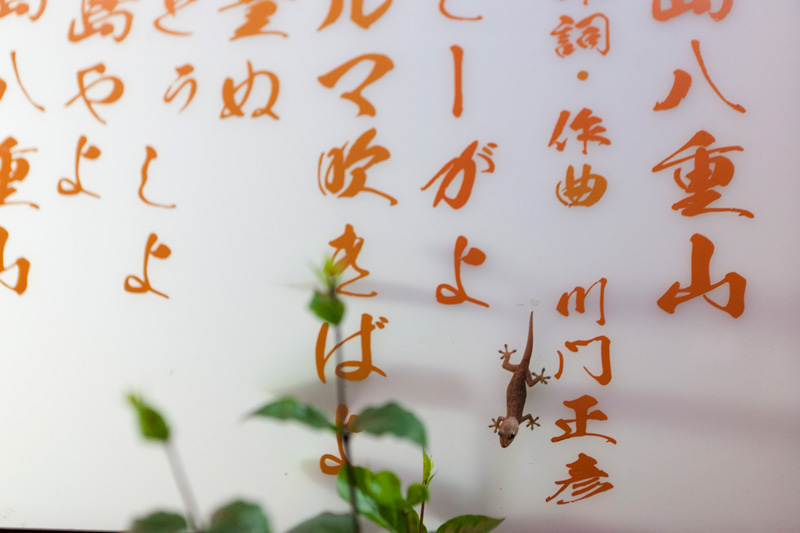 島八重山
詞・作曲 川門正彦
ーがよ
ルマ吹きばよ
重ぬ
とぅしよ
島やよ
八重山